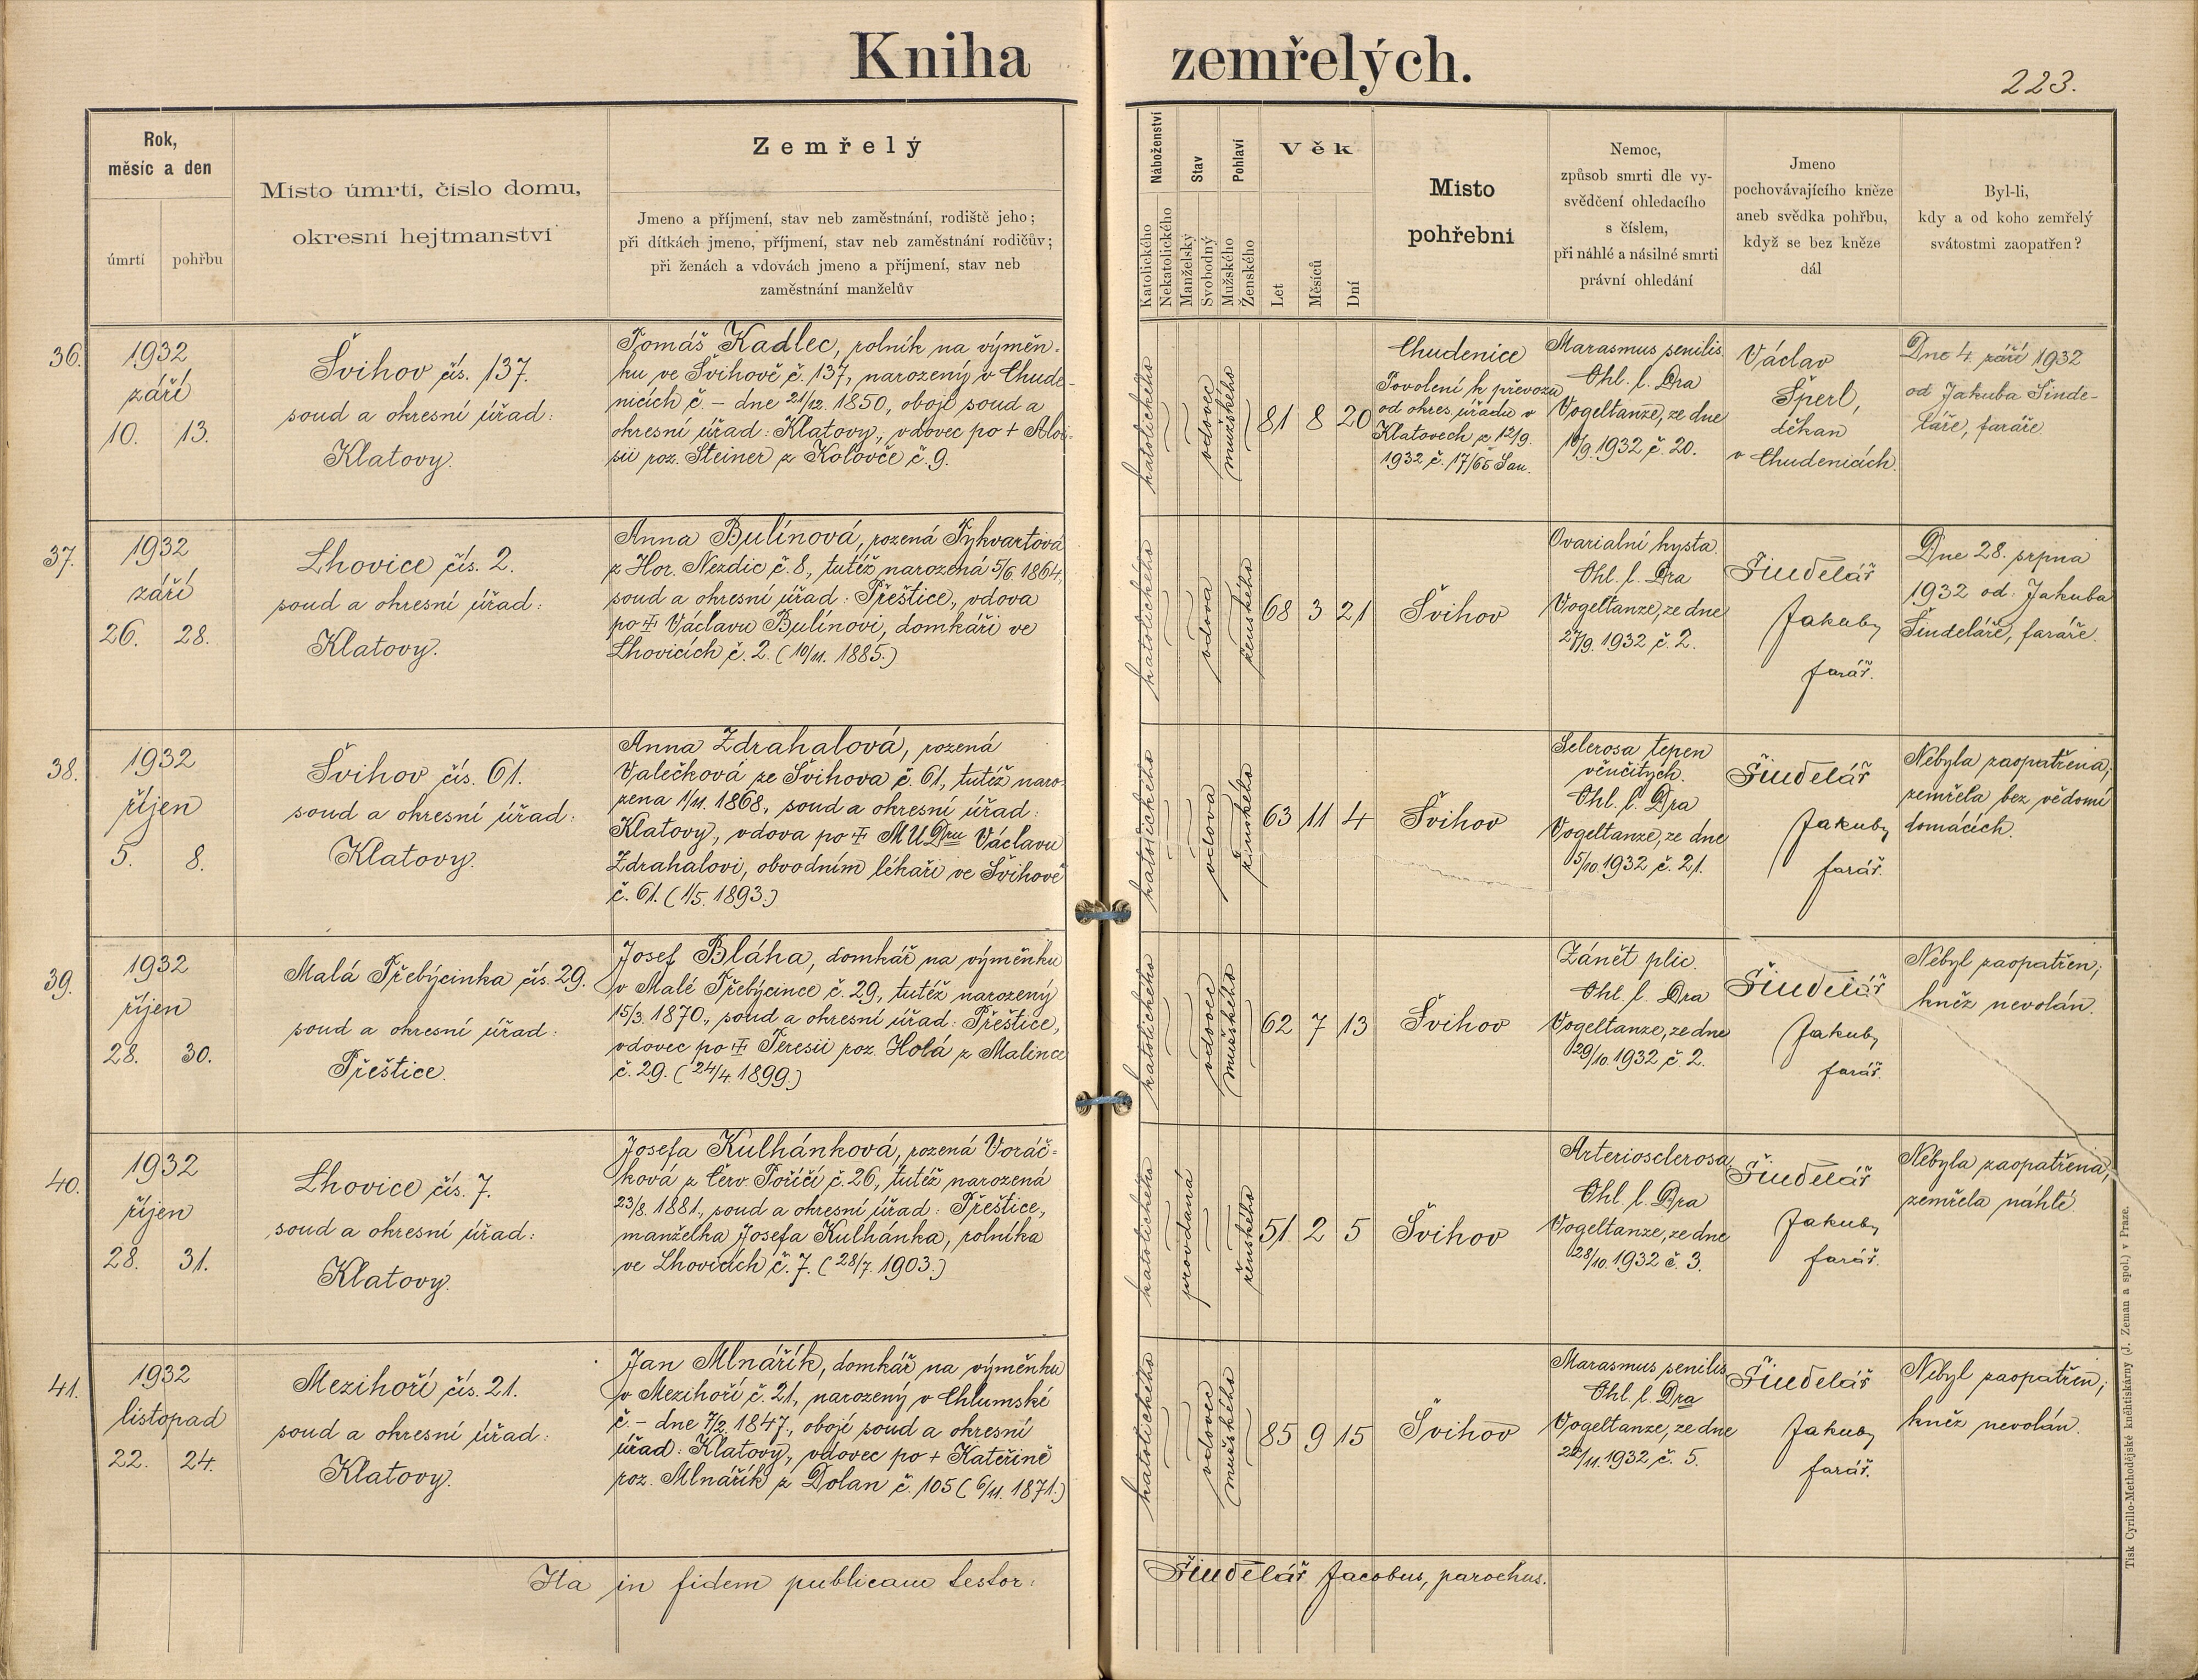 Kniha zemřelých.
223.
Rok,
měsíc a den
úmrtí pohřbu
Místo úmrtí, číslo domu,
okresní hejtmanství
Zemřelý
Jmeno a příjmení, stav neb zaměstnání, rodiště jeho;
při dítkách jmeno, příjmení, stav neb zaměstnání rodičův;
při ženách a vdovách jmeno a příjmení, stav neb
zaměstnání manželův
Náboženství
Katolického
Nekatolického
Stav
Manželský
Svobodný
Pohlaví
Mužského
Ženského
Věk
Let
Měsíců
Dní
Místo
pohřební
Nemoc,
způsob smrti dle vy-
svědčení ohledacího
s číslem,
při náhlé a násilné smrti
právní ohledání
Jmeno
pochovávajícího kněze
aneb svědka pohřbu,
když se bez kněze
dál
Byl-li,
kdy a od koho zemřelý
svátostmi zaopatřen?
36.
1932
září
10. 13.
Švihov čís. 137.
soud a okresní úřad:
Klatovy.
Tomáš Kadlec, rolník na výměn-
ku ve Švihově č. 137, narozený v Chude-
nicích č. – dne 21/12. 1850, obojí soud a
okresní úřad: Klatovy, vdovec po + Aloi-
sii roz. Steiner z Koloveče č. 9.
katolického
vdovec
mužského
81 8 20
Chudenice
Povolení k převozu
od okres. úřadu v
Klatovech z 12/9.
1932 č. 17/65 San.
Marasmus senilis.
Ohl. l. Dra
Vogeltanze, ze dne
10/9. 1932 č. 20.
Václav
Šperl,
děkan
v Chudenicích.
Dne 4. září 1932
od Jakuba Šinde-
láře, faráře
37.
1932
září
26. 28.
Lhovice čís. 2.
soud a okresní úřad:
Klatovy.
Anna Bulínová, rozená Tykvartová
z Hor. Nezdic č. 8., tutéž narozená 5/6. 1864,
soud a okresní úřad: Přeštice, vdova
po ‡ Václavu Bulínovi, domkáři ve
Lhovicích č. 2. (10/11. 1885.)
katolického
vdova
ženského
68 3 21
Švihov
Ovarialní kysta.
Ohl. l. Dra
Vogeltanze, ze dne
27/9. 1932 č. 2.
Šindelář
Jakub,
farář.
Dne 28. srpna
1932 od: Jakuba
Šindeláře, faráře.
38.
1932
říjen
5. 8.
Švihov čís. 61.
soud a okresní úřad:
Klatovy.
Anna Zdrahalová, rozená
Valečková ze Švihova č. 61, tutéž naro-
zena 1/11. 1868., soud a okresní úřad:
Klatovy, vdova po ‡ MUDru Václavu
Zdrahalovi, obvodním lékaři ve Švihově
č. 61. (1/5. 1893.)
katolického
vdova
ženského
63 11 4
Švihov
Sclerosa tepen
věnčitých.
Ohl. l. Dra
Vogeltanze, ze dne
5/10. 1932 č. 21.
Šindelář
Jakub,
farář.
Nebyla zaopatřena;
zemřela bez vědomí
domácích.
39.
1932
říjen
28. 30.
Malá Třebýcinka čís. 29.
soud a okresní úřad:
Přeštice.
Josef Bláha, domkář na výměnku
v Malé Třebýcince č. 29., tutéž narozený
15/3. 1870., soud a okresní úřad: Přeštice,
vdovec po ‡ Teresii roz. Holá z Malince
č. 29. (24/4. 1899.)
katolického
vdovec
mužského
62 7 13
Švihov
Zánět plic.
Ohl. l. Dra
Vogeltanze, ze dne
29/10. 1932 č. 2.
Šindelář
Jakub,
farář.
Nebyl zaopatřen;
kněz nevolán.
40.
1932
říjen
28. 31.
Lhovice čís. 7.
soud a okresní úřad:
Klatovy.
Josefa Kulhánková, rozená Voráč-
ková z Červ. Poříčí č. 26, tutéž narozená
23/8. 1881., soud a okresní úřad: Přeštice,
manželka Josefa Kulhánka, rolníka
ve Lhovicích č. 7. (28/7. 1903.)
katolického
provdaná
ženského
51 2 5
Švihov
Arteriosclerosa.
Ohl. l. Dra
Vogeltanze, ze dne
28/10. 1932 č. 3.
Šindelář
Jakub,
farář.
Nebyla zaopatřena,
zemřela náhle.
41.
1932
listopad
22. 24.
Mezihoří čís. 21.
soud a okresní úřad:
Klatovy.
Jan Mlnářík, domkář na výměnku
v Mezihoří č. 21, narozený v Chlumské
č. – dne 7/2. 1847., obojí soud a okresní
úřad: Klatovy, vdovec po + Kateřině
roz. Mlnářík z Dolan č. 105 (6/11. 1871.)
katolického
vdovec
mužského
85 9 15
Švihov
Marasmus senilis.
Ohl. l. Dra
Vogeltanze, ze dne
22/11. 1932 č. 5.
Šindelář
Jakub,
farář.
Nebyl zaopatřen;
kněz nevolán.
Ita in fidem publicam testor: Šindelář Jacobus, parochus.
Tisk Cyrillo-Methodějské knihtiskárny (J. Zeman a spol.) v Praze.